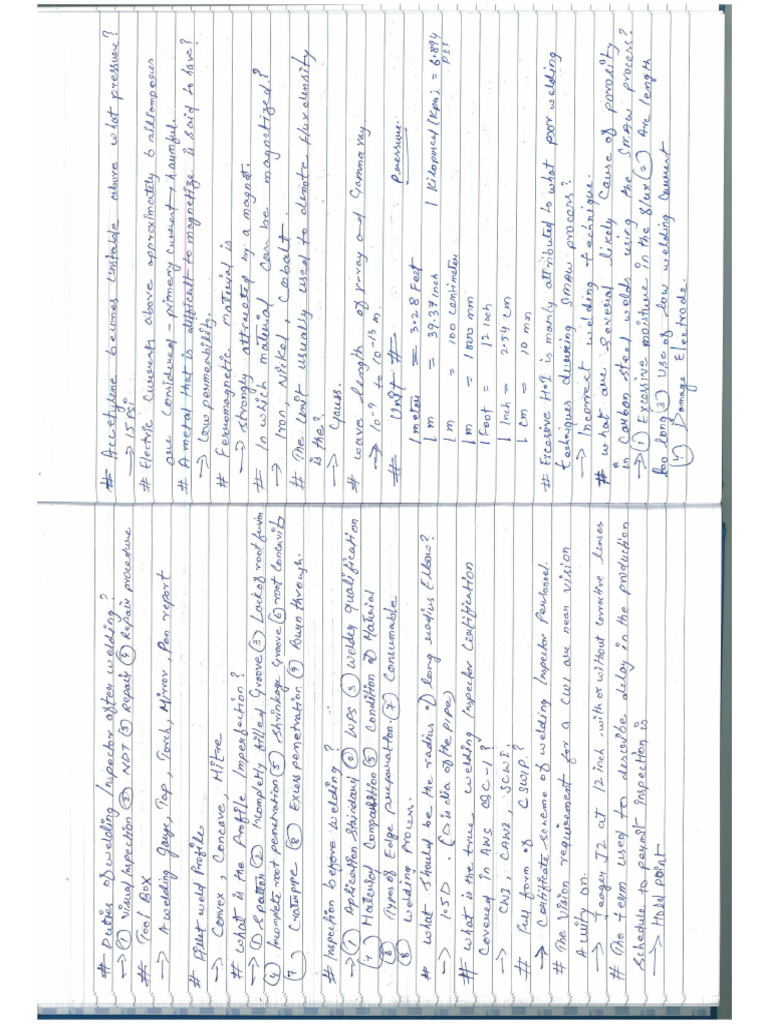 # Duties of welding Inspector after welding?
→ ① Visual Inspection ② NDT ③ Repair ④ Repair procedure
# Tool Box
→ A welding Gauge, Tap, Torch, Mirror, Pen report
# Fillet weld Profiles
→ Convex, Concave, Mitre
# What is the Profile Imperfection?
→ ① Spatter ② Incompletly filled Groove ③ Lack of root fusion
④ Incomplete root penetration ⑤ Shrinkage Groove ⑥ root concavity
⑦ Craterpipe ⑧ Excess penetration ⑨ Burn through.
# Inspection before welding?
→ ① Application Standard ② WPS ③ welder qualification
④ Material Composition ⑤ Condition of Material
⑥ Types of Edge preparation ⑦ Consumable
⑧ welding process.
# what should be the radius of long radius Elbow?
→ 1.5 D. (D is dia of the pipe)
# what is the true, welding Inspector Certification
Covered in AWS QC-1?
→ CWI, CAWI, SCWI.
# Full form of CSWIP?
→ Certificate scheme of welding Inspector Personnel.
# The Vision requirement for a CWI are near vision
Acuity on.
→ Jeager J2 at 12 inch with or without corrective lenses
# The term used to describe delay in the production
Schedule to permit inspection is
→ Hold point
# Accetylene becomes Unstable above what pressure?
→ 15 Psi
# Electric Currents above approximately 6 millamperes
are considered - primary current, harmful.
# A metal that is difficult to magnetize is said to have?
→ Low permeability.
# Ferromagnetic material is
→ strongly attracted by a magnet.
# In which material can be magnetized?
→ Iron, Nikel, Cobalt.
# The Unit usually used to denote flux density
is the?
→ Gauss.
# wave length of x-ray and Gamma ray.
→ 10-9 to 10-13 m.
# Unit # Pressure
1 meter = 3.28 Feet
1 m = 39.37 Inch 1 Kilopascal (Kpa) = 6.894 PSI
1 m = 100 centimeter
1 m = 1000 mm
1 Foot = 12 Inch
1 Inch = 2.54 cm
1 cm = 10 mm
# Excessive H.I is mainly attributed to what poor welding
techniques during SMAW process?
→ Incorrect welding technique.
# what are several likely cause of porosity
in Carbon steel welds using the SMAW process?
→ ① Excessive moisture in the flux ② Arc length
too long ③ Use of low welding Current
④ Damage Electrode.